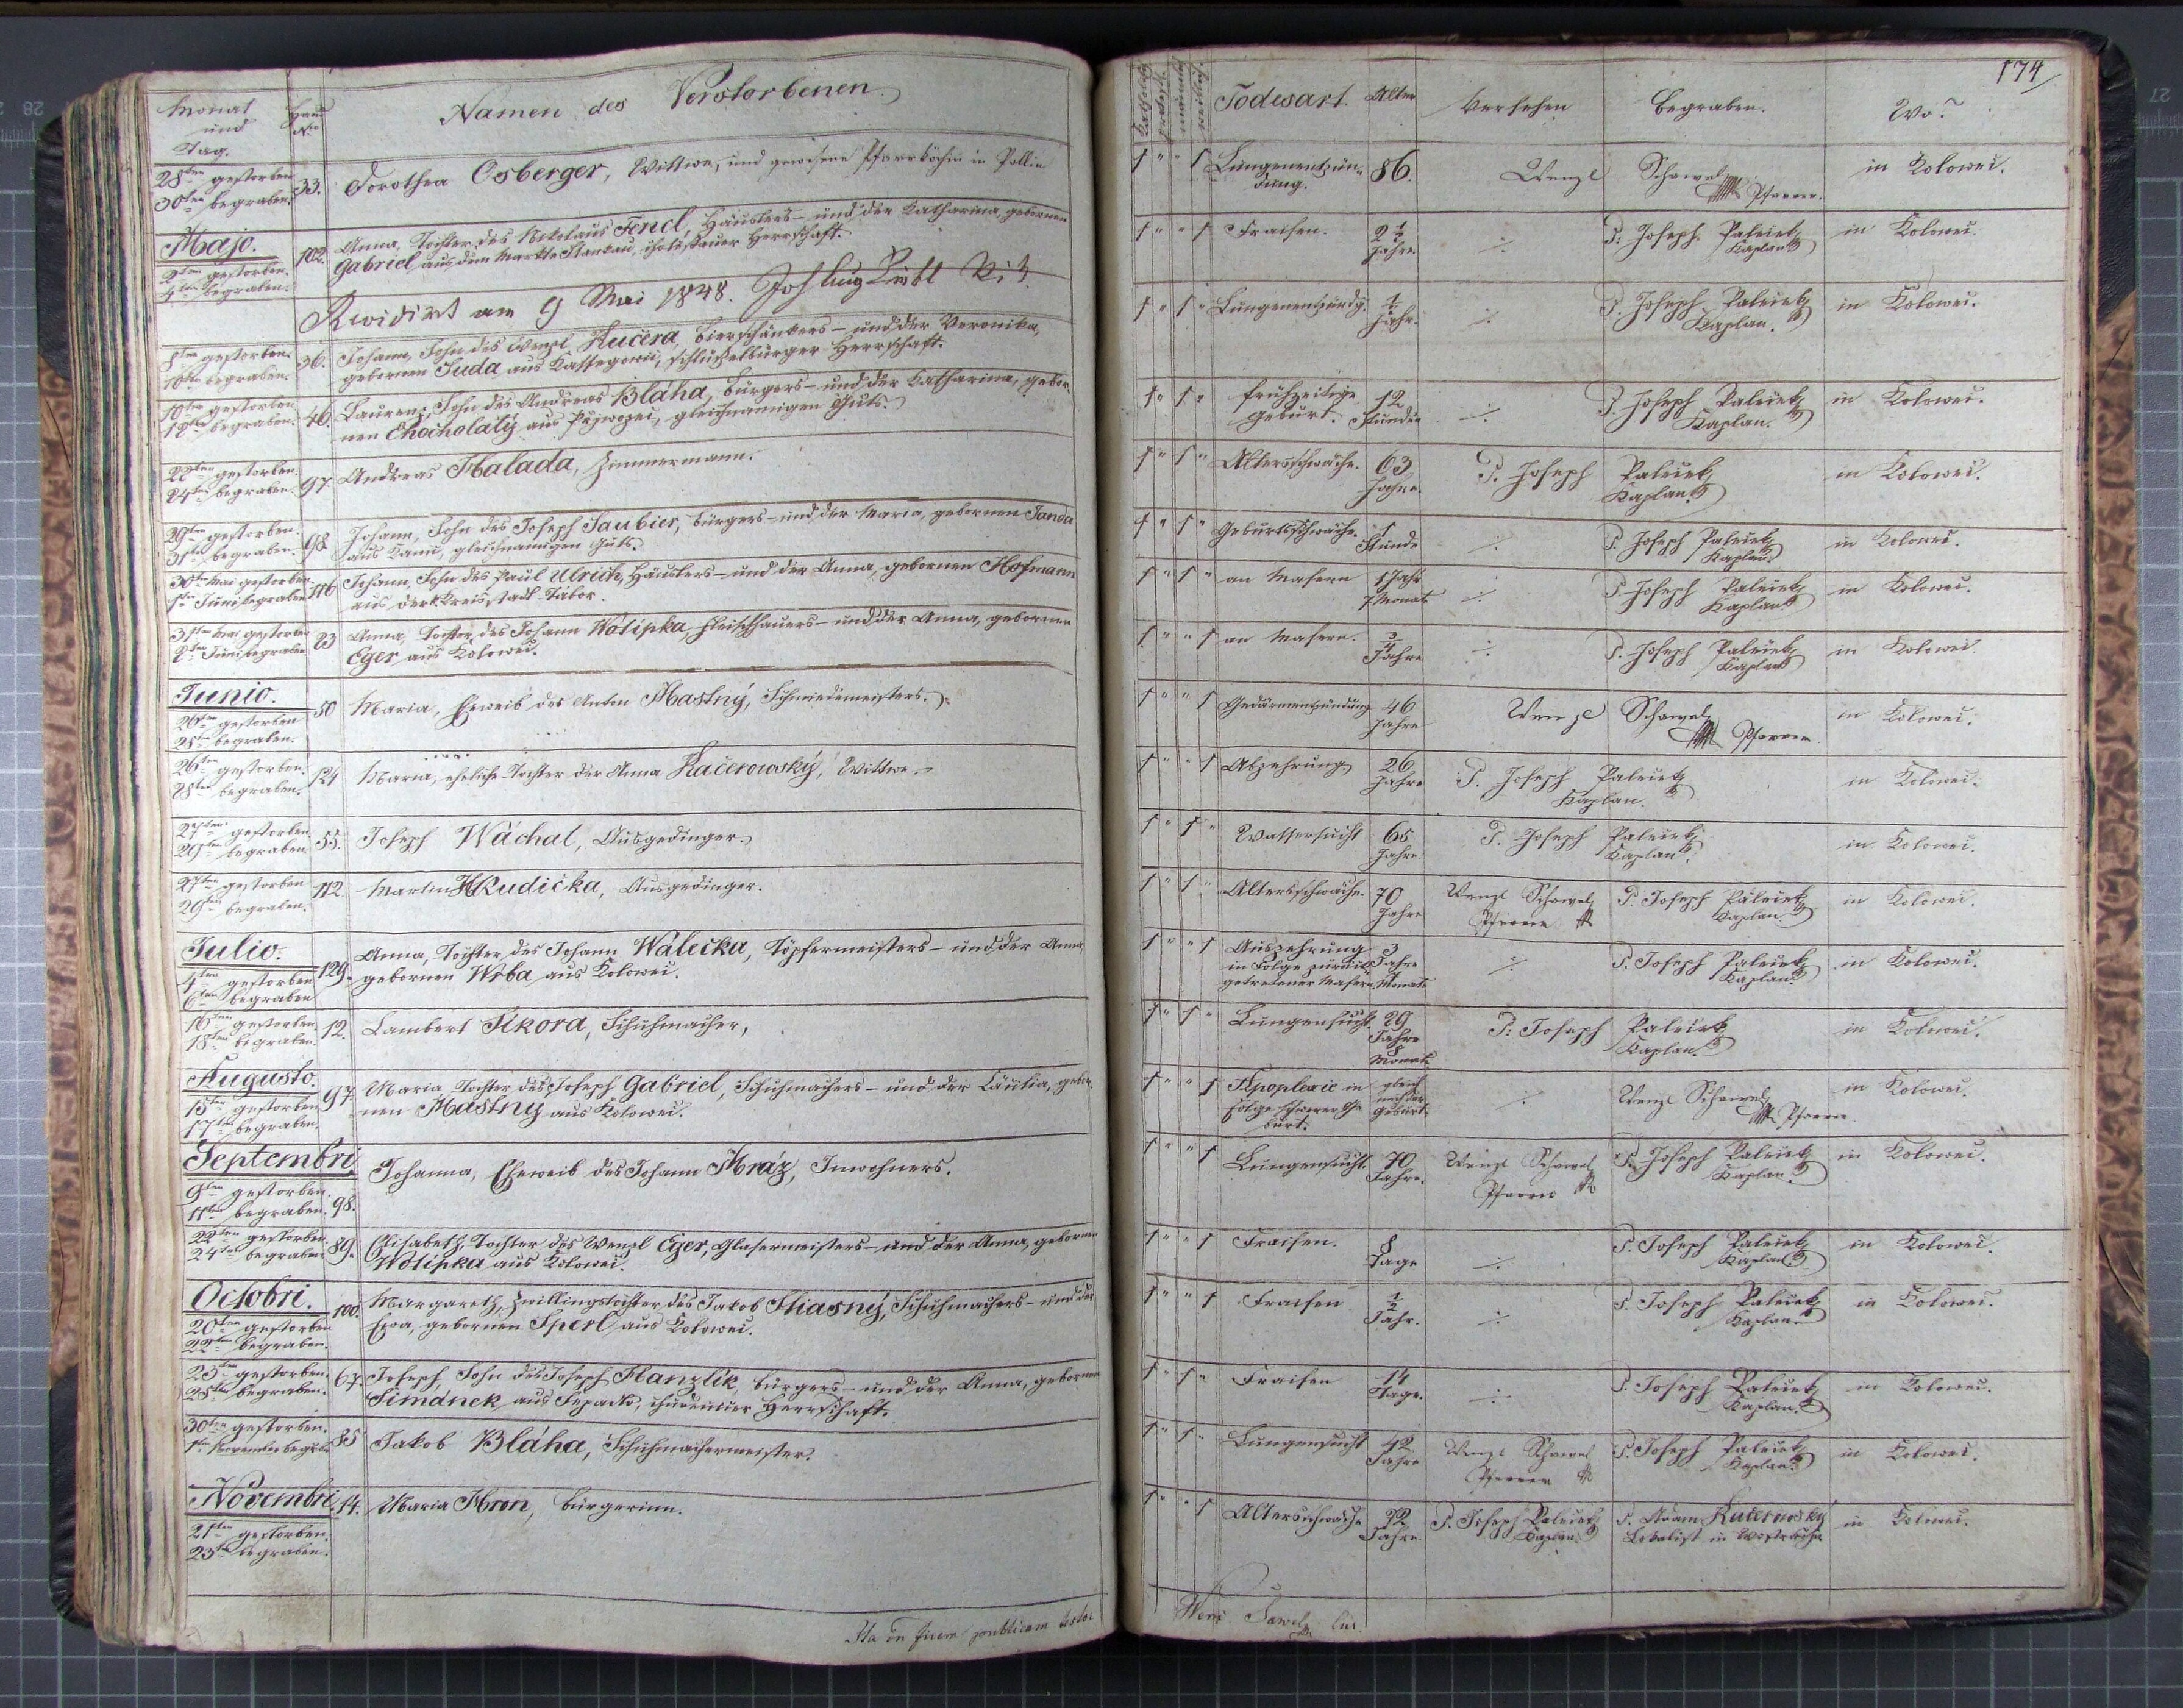 Monat
und
Tag.
Haus
Nro
Namen des Verstorbenen.
28ten gestorben
30ten begraben.
33.
Dorothea Osberger, Wittwe, und gewesene Pfarrköchin in Pollin
Majo.
2ten gestorben.
4ten begraben.
102.
Anna, Tochter des Nikolaus Fencl, Häuslers – und der Katharina, gebornen
Gabriel aus dem Markte Stankau, Herrschaft.
Revidirt am 9 Mai 1848.
8ten gestorben.
10ten begraben.
36.
Johann, Sohn des Wenzl Kučera, Bierschänkers – und der Veronika,
gebornen Suda aus Kassegowic, Schlüsselburger Herrschaft.
10ten gestorben
12ten begraben.
46.
Laurenz, Sohn des Andreas Bláha, Bürgers – und der Katharina, gebor-
nen Chocholatÿ aus gleichnamigen Guts.
22ten gestorben.
24ten begraben.
97.
Andreas Halada, Zimmermann.
29ten gestorben.
31ten begraben.
98
Johann, Sohn des Joseph Saubier, Bürgers – und der Maria, gebornen Janda
aus gleichnamigen Guts.
30ten Mai gestorben.
1ten Juni begraben
116
Johann, Sohn des Paul Ulrich, Häuslers – und der Anna, gebornen Hofmann
aus der k. Kreisstadt Tabor.
31ten Mai gestorben
2ten Juni begraben
23
Anna, Tochter des Johann Wotipka, Fleischhauers – und der Anna, gebornen
Eger aus Kolowec.
Junio.
26ten gestorben
28ten begraben.
50
Maria, Eheweib des Anton Mastný, Schmiedemeisters.
26ten gestorben.
28ten begraben.
124
Maria, eheliche Tochter der Anna Kačerowský, Wittwe.
27ten gestorben.
29ten begraben
55.
Joseph Wáchal, Ausgedinger.
27ten gestorben
29ten begraben.
112.
Martin Hrudička, Ausgedinger.
Julio.
4ten gestorben
6ten begraben
129.
Anna, Tochter des Johann Walečka, Töpfermeisters – und der Anna,
gebornen Wrba aus Kolowec.
16ten gestorben
18ten begraben.
12.
Lambert Sikora, Schuhmacher,
Augusto.
15ten gestorben
17ten begraben.
97.
Maria, Tochter des Joseph Gabriel, Schuhmachers – und der Cäcilia, gebor-
nen Mastnÿ aus Kolowec.
Septembri
9ten gestorben.
11ten begraben.
98.
Johanna, Eheweib des Johann Mráz, Inwohners.
22ten gestorben.
24ten begraben
89.
Elisabeth, Tochter des Wenzl Eger, Glasermeisters – und der Anna, gebornen
Wotipka aus Kolowec.
Octobri.
20ten gestorben
22ten begraben.
100.
Margareth, Zwillingstochter des Jakob Stiasný, Schuhmachers – und der
Ewa, gebornen Sperl aus Kolowec.
23ten gestorben.
25ten begraben.
67.
Joseph, Sohn des Joseph Hanzlik, Bürgers – und der Anna, gebornen
Simánek aus Herrschaft.
30ten gestorben.
1ten November begraben
85
Jakob Bláha, Schuhmachermeister.
Novembri
21ten gestorben.
23ten begraben.
14.
Maria Hron, Bürgerinn.
Ita in fidem publicam testor
174
Katholisch
protest.
männlich
weiblich.
Todesart
Alter
Versehen
Begraben.
Wo?
1 " " 1 Lungenentzün-
dung.
86.
Wenzl Schawel
Pfarrer.
in Kolowec.
1 " " 1 Fraisen.
2 1/2
Jahre
÷
P. Joseph Paleček
Kaplan
in Kolowec.
1 " 1 " Lungenentzündg.
1/2
Jahr.
÷
P. Joseph Paleček
Kaplan.
in Kolowec.
1 " 1 " frühzeitige
Geburt.
12
Stunden
÷
P. Joseph Paleček
Kaplan.
in Kolowec.
1 " 1 " Altersschwäche.
63
Jahre.
P. Joseph Paleček
Kaplan
in Kolowec.
1 " 1 " Geburtsschwäche.
1
Stunde
÷
P. Joseph Paleček
Kaplan
in Kolowec.
1 " 1 " an Masern
1 Jahr
7 Monate
÷
P. Joseph Paleček
Kaplan
in Kolowec.
1 " " 1 an Masern.
3/4
Jahre
÷
P. Joseph Paleček
Kaplan
in Kolowec.
1 " " 1 Gedärmentzündung
46
Jahre
Wenzl Schawel
Pfarrer
in Kolowec.
1 " " 1 Abzehrung
26
Jahre
P. Joseph Paleček
Kaplan.
in Kolowec.
1 " 1 " Wassersucht
65
Jahre
P. Joseph Paleček
Kaplan.
in Kolowec.
1 " 1 " Altersschwäche.
70
Jahre
Wenzl Schawel
Pfarrer
P. Joseph Paleček
Kaplan
in Kolowec.
1 " " 1 Auszehrung
in Folge zurück-
getretener Masern
3
Jahre
Monate
÷
P. Joseph Paleček
Kaplan
in Kolowec.
1 " 1 " Lungensucht.
29
Jahre
8
Monate
P. Joseph Paleček
Kaplan.
in Kolowec.
1 " " 1 Apoplexie in
Folge schwerer Ge-
burt.
gleich
nach der
Geburt.
÷
Wenzl Schawel
Pfarrer
in Kolowec.
1 " " 1 Lungensucht.
70
Jahre.
Wenzl Schawel
Pfarrer
P. Joseph Paleček
Kaplan
in Kolowec.
1 " " 1 Fraisen.
8
Tage
÷
P. Joseph Paleček
Kaplan
in Kolowec.
1 " " 1 Fraisen
1/2
Jahr.
÷
P. Joseph Paleček
Kaplan
in Kolowec.
1 " 1 " Fraisen
14
Tage.
÷
P. Joseph Paleček
Kaplan.
in Kolowec.
1 " 1 " Lungensucht
42
Jahre
Wenzl Schawel
Pfarrer
P. Joseph Paleček
Kaplan
in Kolowec.
1 " " 1 Altersschwäche
72
Jahre.
P. Joseph Paleček
Kaplan.
P. Adam Kučerowský
Lokalist in
in Kolowec.